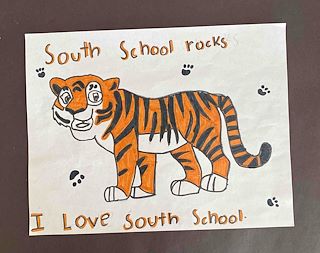 South School rocks
I Love South School.